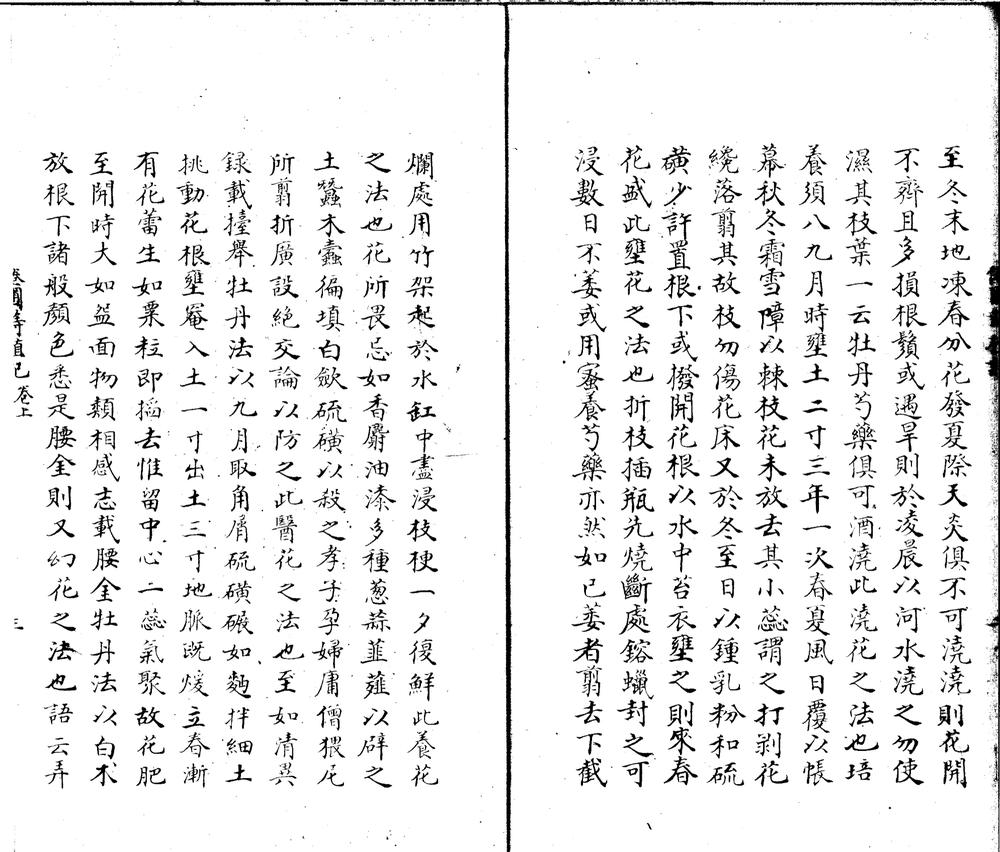 至冬末地凍春分花發夏際天炎俱不可澆澆則花開
不齊且多損根鬚或遇旱則於凌晨以河水澆之勿使
濕其枝葉一云牡丹芍藥俱可酒澆此澆花之法也培
養須八九月時壅土二寸三年一次春夏風日覆以帳
幕秋冬霜雪障以棘枝花未放去其小蕊謂之打剝花
纔落翦其故枝勿傷花床又於冬至日以鍾乳粉和硫
磺少許置根下或撥開花根以水中苔衣壅之則來春
花盛此壅花之法也折枝插瓶先燒斷處鎔蠟封之可
浸數日不萎或用蜜養芍藥亦然如已萎者翦去下截
爛處用竹架起於水缸中盡浸枝梗一夕復鮮此養花
之法也花所畏忌如香麝油漆多種葱蒜韭薤以辟之
土蠶木蠹徧填白歛硫磺以殺之孝子孕婦庸僧猥尼
所翦折廣設絶交論以防之此醫花之法也至如清異
録載擡舉牡丹法以九月取角屑硫磺碾如麪拌細土
挑動花根壅罨入土一寸出土三寸地脈既煖立春漸
有花蕾生如粟粒即掐去惟留中心二蕊氣聚故花肥
至開時大如盌面物類相感志載腰金牡丹法以白朮
放根下諸般顏色悉是腰金則又幻花之法也語云弄
卷上
三